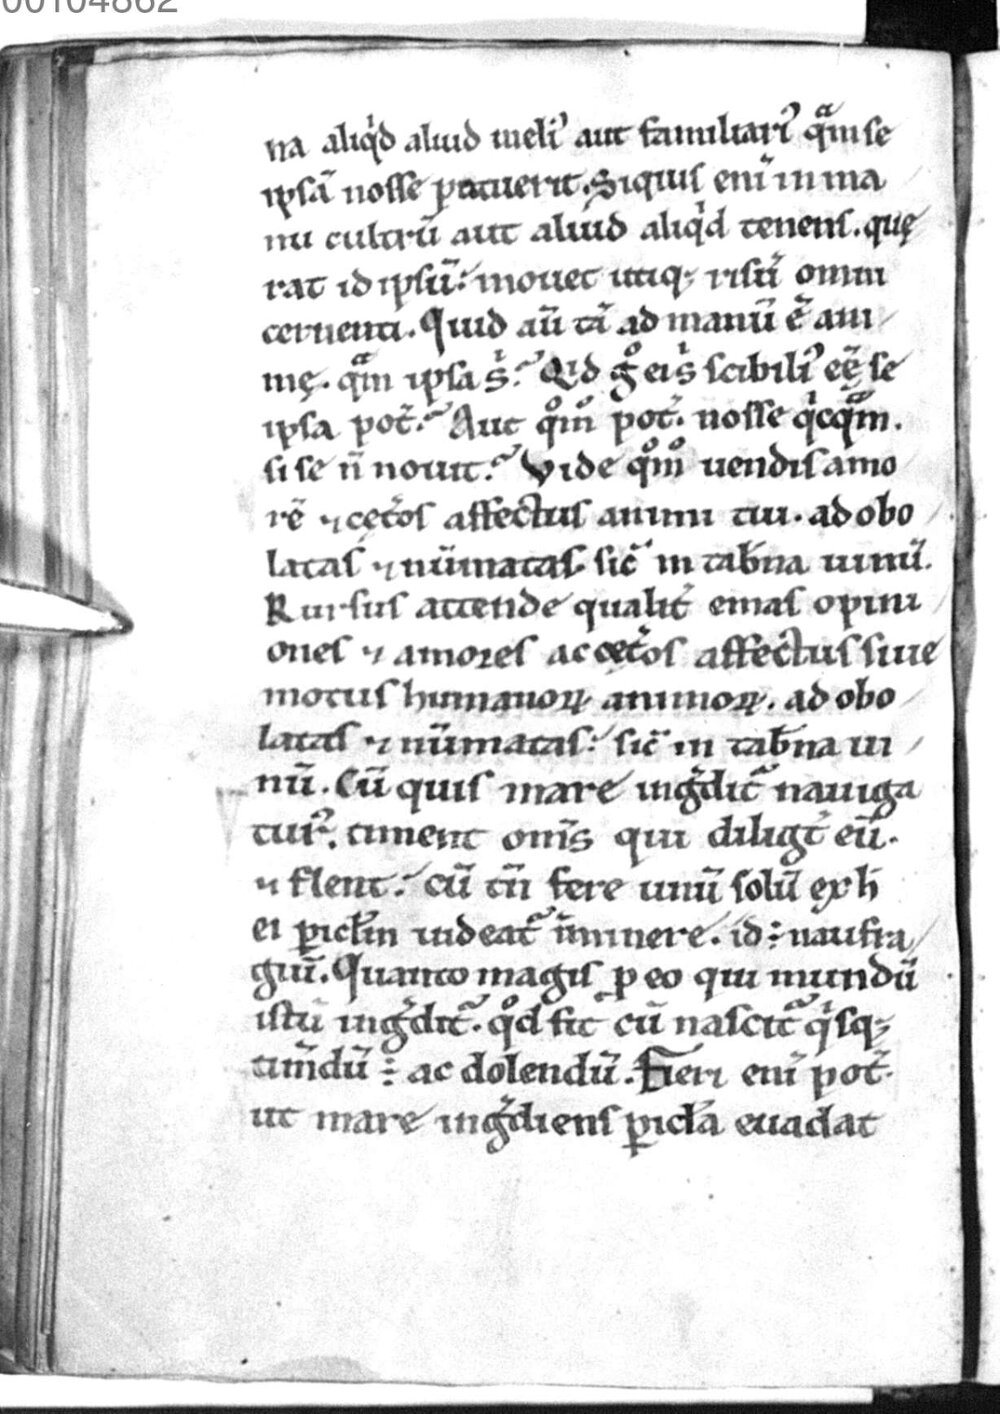 00104862
na aliqͥd aliud meliꝰ aut familiariꝰ qͣ̄m se
ipsā nosse p̲otuerit. Siquis enī in ma
nu cultrū aut aliud aliqͥd tenens. quę
rat id ipsū? mouet utiq; risū omni
cernenti. Quid aū tā ad manū ē ani
mę. qͣ̄m ipsa sͥ? Qid gͦ ei sͥ scibiliꝰ eę̄ se
ipsa pot̄? Aut qͦmͦ pot̄. nosse qͥcqͣ̄m.
si se n̄ nouit? Vide qͦmͦ uendis amo
rē ⁊ cęt̄os affectus animi tui. ad obo
latas ⁊ nūmatas. sic̄ in tab̄na uinū.
Rursus attende qualit̄ emas opini
ones ⁊ amores ac cęt̄os affectus siue
motus humanoꝝ animoꝝ. ad obo
latas ⁊ nūmatas. sic̄ in tab̄na ui
nū. Cū quis mare ingͣdit᷑ nauiga
tur̾. timent om̄s qui diligt̄ eū.
⁊ flent. cū tn̄ fere unū solū ex h̄
ei ꝑicl̄m uideat᷑ īminere. id ÷ naufra
giū. Quanto magis p eo qui mundū
istū ingͣdit᷑. qͦd fit cū nascit᷑ qͥsq;
tim̄dū ÷ ac dolendū. Fieri enī pot̄.
ut mare ingͣdiens ꝑicl̄a euadat